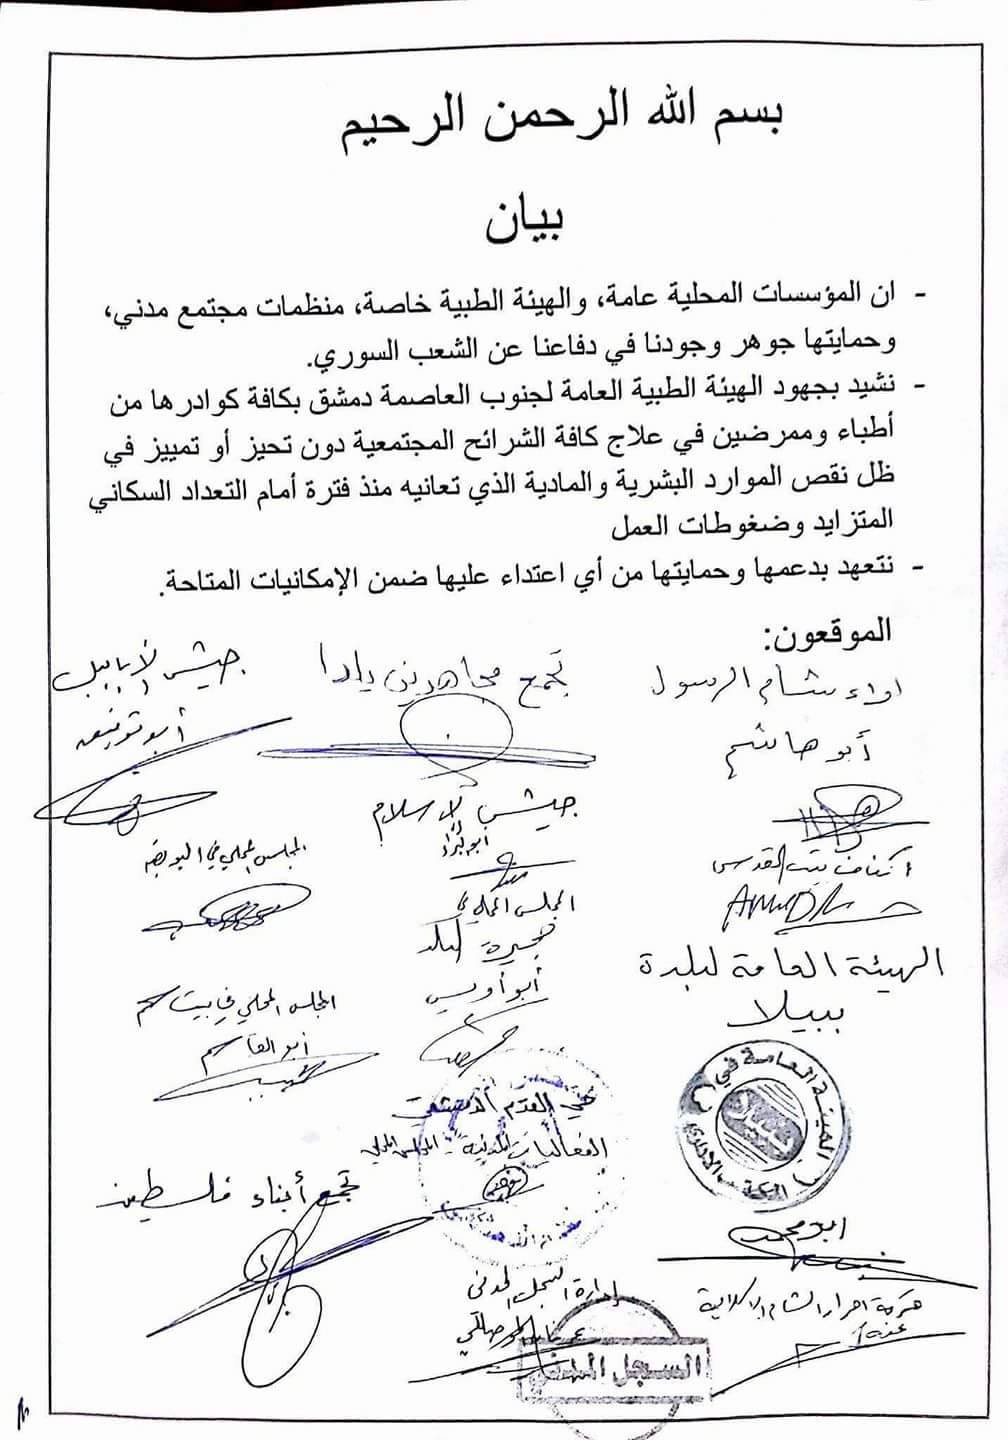 بسم الله الرحمن الرحيم
بيان
- ان المؤسسات المحلية عامة، والهيئة الطبية خاصة، منظمات مجتمع مدني،
وحمايتها جوهر وجودنا في دفاعنا عن الشعب السوري.
- نشيد بجهود الهيئة الطبية العامة لجنوب العاصمة دمشق بكافة كوادرها من
أطباء وممرضين في علاج كافة الشرائح المجتمعية دون تحيز أو تمييز في
ظل نقص الموارد البشرية والمادية الذي تعانيه منذ فترة أمام التعداد السكاني
المتزايد وضغوطات العمل
- نتعهد بدعمها وحمايتها من أي اعتداء عليها ضمن الإمكانيات المتاحة.
الموقعون:
لواء شام الرسول
أبو هاشم
تجمع مجاهدين يلدا
جيش الأبابيل
أبو توفيق
جيش الإسلام
المجلس المحلي في البويضة
أكناف بيت المقدس
المجلس المحلي
أبو أويس
الهيئة العامة لبلدة
ببيلا
المجلس المحلي في بيت سحم
أبو القاسم
الهيئة العامة في
ببيلا
المكتب الإداري
حي القدم الدمشقي
الفعاليات المدنية - المجلس المحلي
تجمع أبناء فلسطين
ابو محمد
حركة احرار الشام الإسلامية
إدارة السجل المدني
السجل المدني